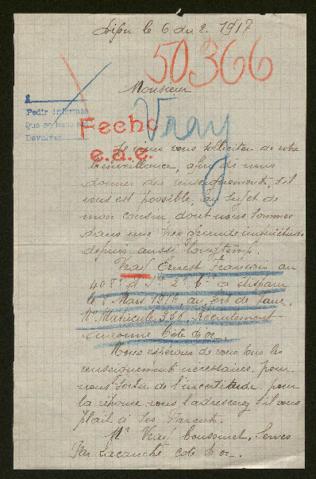 Dijon le 6 du 2. 1917
50366
Monsieur
Vray
Pedir informes
Fecho
e.a.e.
Je viens vous solliciter de votre
bienveillance, afin de nous
donner des renseignements, s'il
vous est possible, au sujet de
mon cousin dont nous sommes
dans une très grande inquiétude
depuis aussi longtemps.
Vray Ernest François au
408e d'I. 2e Cie disparu
Mars 1916 au fort de Vaux
No Matricule 331 Recrutement
Auxonne Cote d'Or.
Nous espérons de vous tous les
renseignements nécessaires pour
nous sortir de l'incertitude pour
la réponse vous l'adresserez s'il vous
plaît à Ses Parents.
Mr Vray
Cote d'Or.